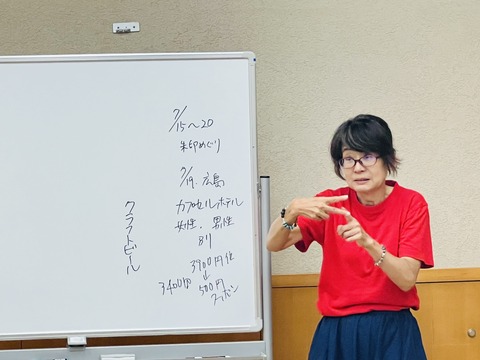 7/15〜20
朱印めぐり
7/19. 広島
カプセルホテル
女性. 男性
3900円位
↓
3400円 500円
クーポン
クラフトビール